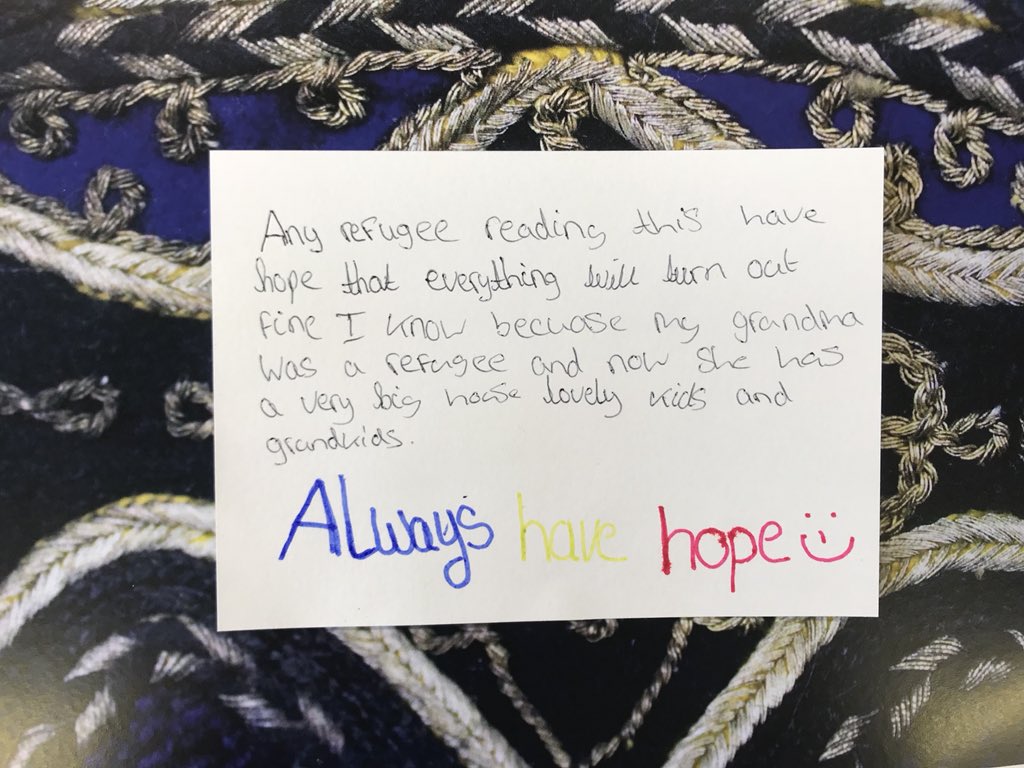 Any refugee reading this have
hope that everything will turn out
fine I know becuase my grandma
was a refugee and now she has
a very big house lovely kids and
grandkids.
Always have hope